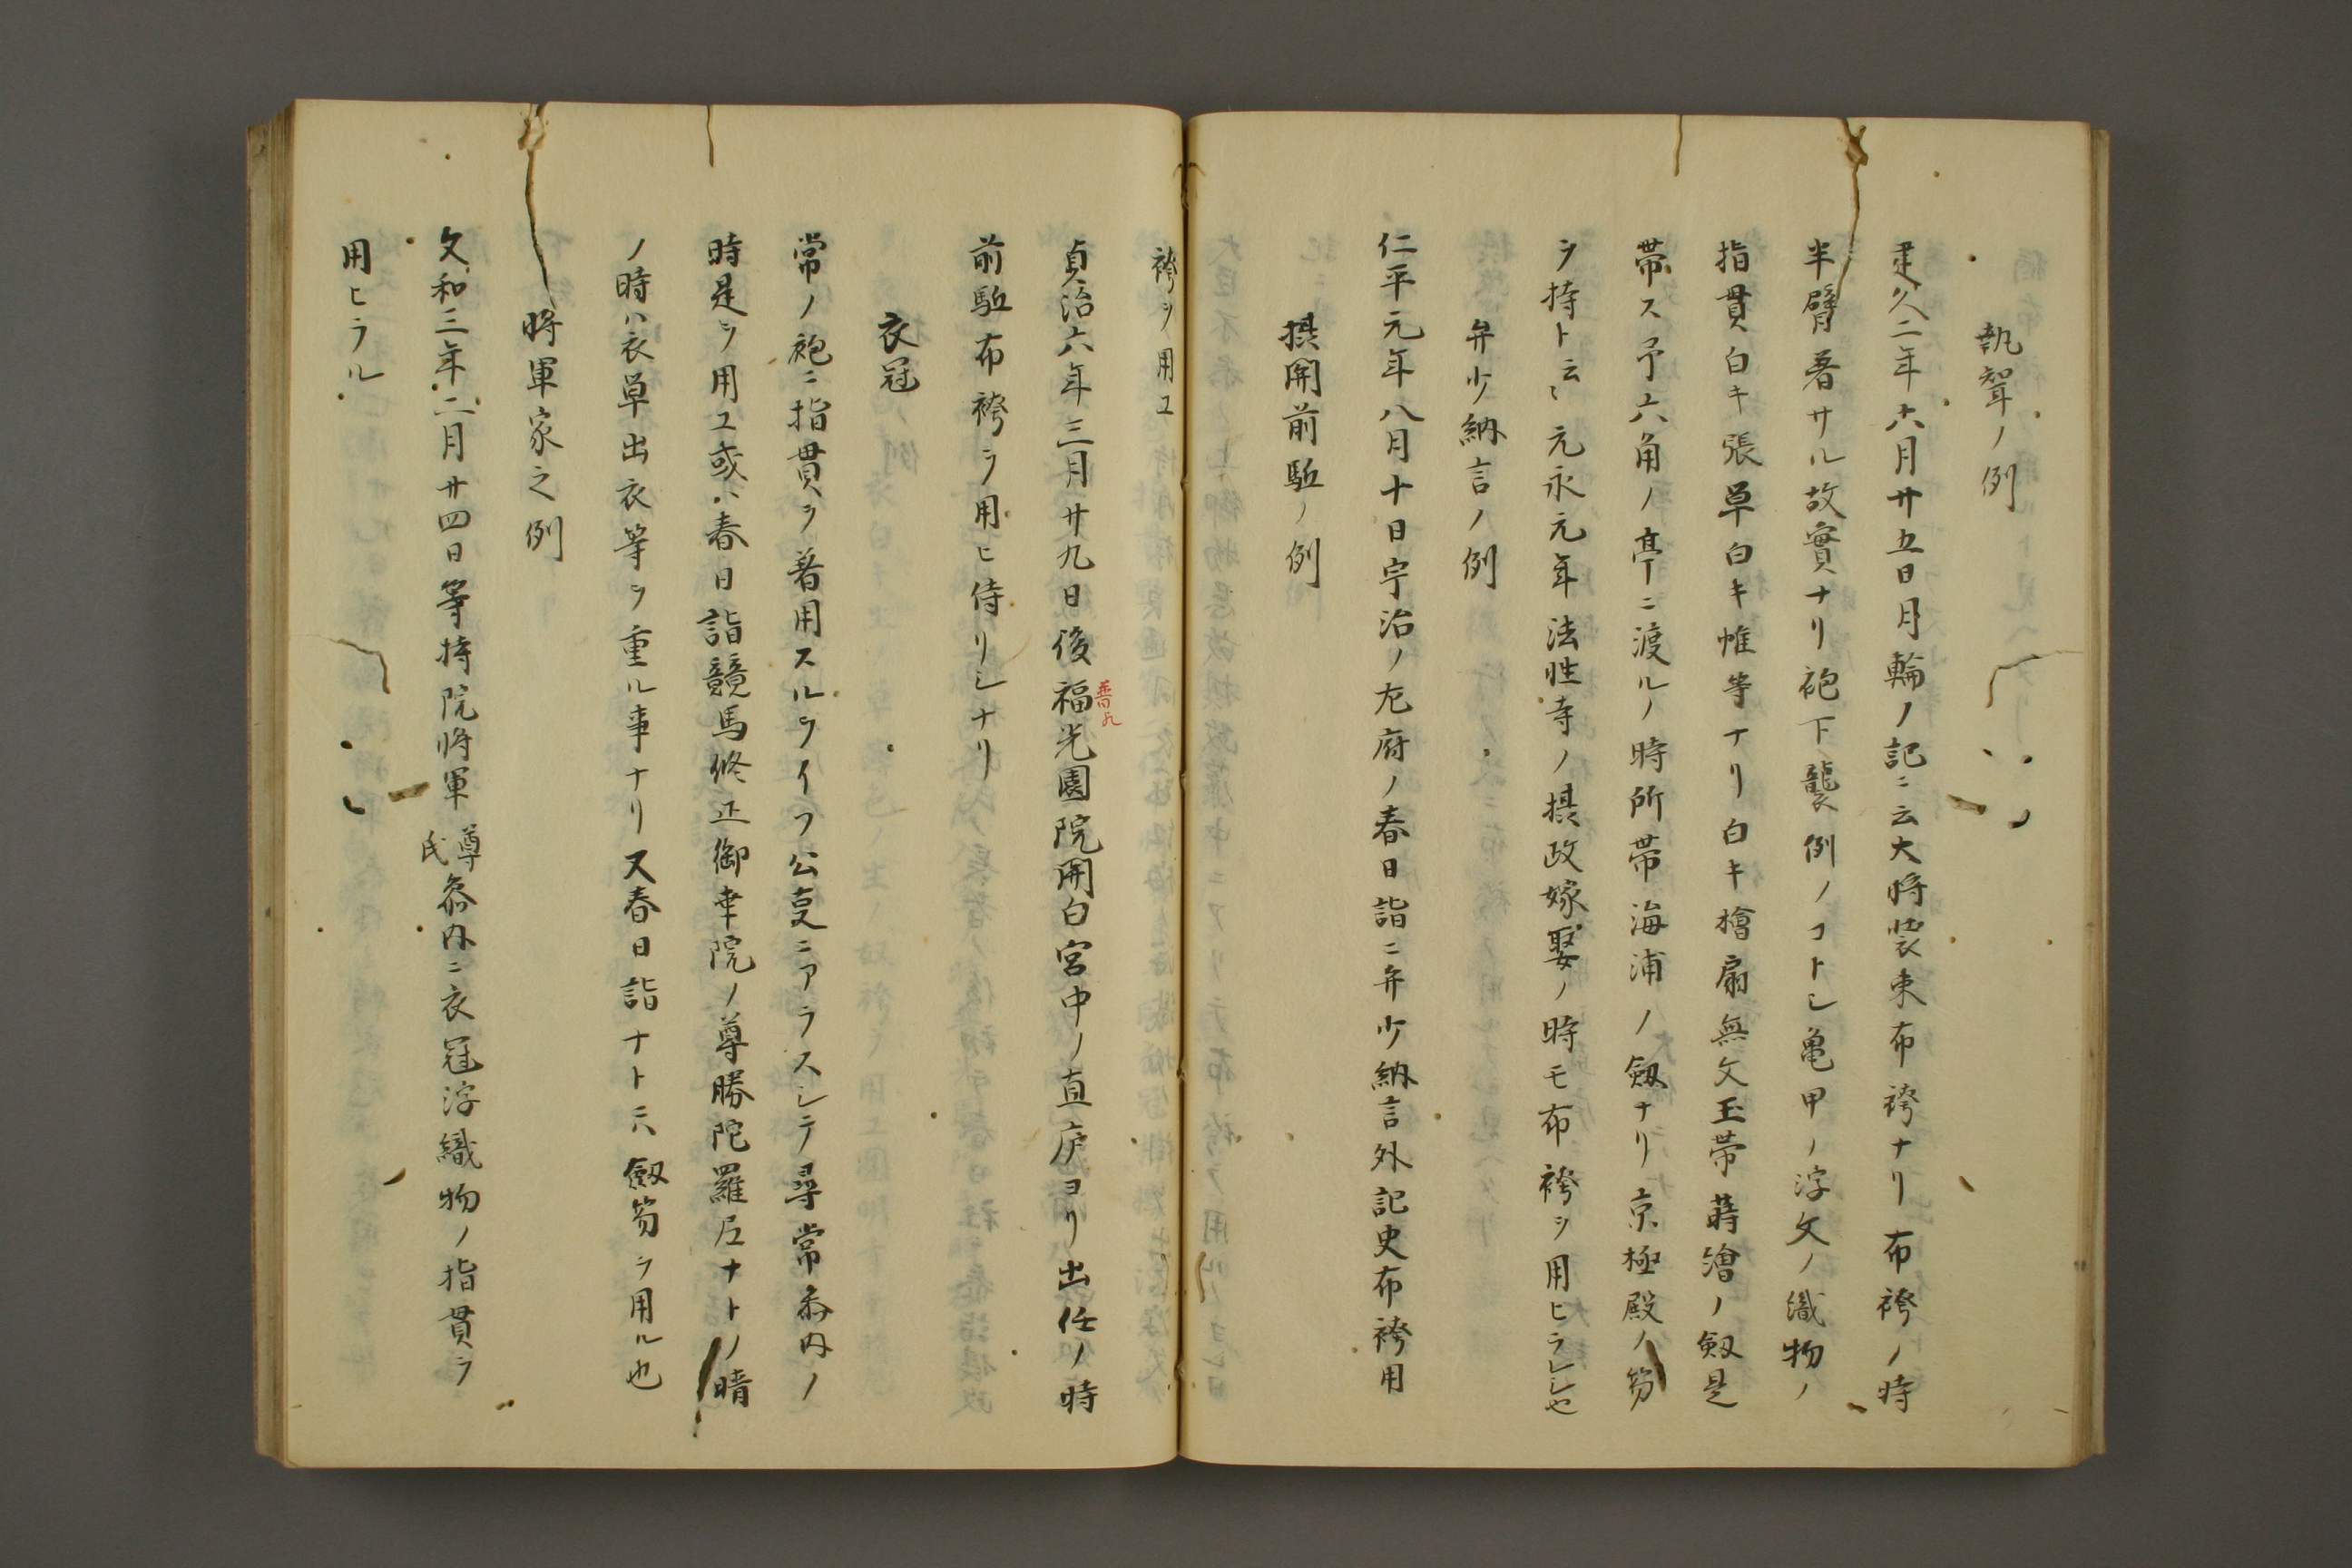 執聟ノ例
建久二年六月廿五日月輪ノ記ニ云大将装束布袴ナリ布袴ノ時
半臂着サル故實ナリ袍下襲例ノコトシ亀甲ノ浮文ノ織物ノ
指貫白キ張単白キ帷等ナリ白キ檜扇無文玉帯蒔繪ノ剱是
帯ス予六角ノ亭ニ渡ルノ時所帯海浦ノ剱ナリ京極殿ノ笏
ヲ持ト云々元永元年法性寺ノ摂政嫁娶ノ時モ布袴ヲ用ヒラレシ也
弁少納言ノ例
仁平元年八月十日宇治ノ左府ノ春日詣ニ弁少納言外記史布袴用
摂関前駈ノ例
袴ヲ用ユ
貞治六年三月廿九日後福光園院関白宮中ノ直庐ヨリ出仕ノ時
普
前駈布袴ヲ用ヒ侍リシナリ
衣冠
常ノ袍ニ指貫ヲ着用スルヲイフ公叓ニアラスシテ尋常参内ノ
時是ヲ用ユ或ハ春日詣競馬修正御幸院ノ尊勝陀羅尼ナトノ晴
ノ時ハ衣単出衣等ヲ重ル事ナリ又春日詣ナトニハ劔笏ヲ用ル也
将軍家之例
文和三年二月廿四日等持院将軍尊氏参内ニ衣冠浮織物ノ指貫ヲ
用ヒラル